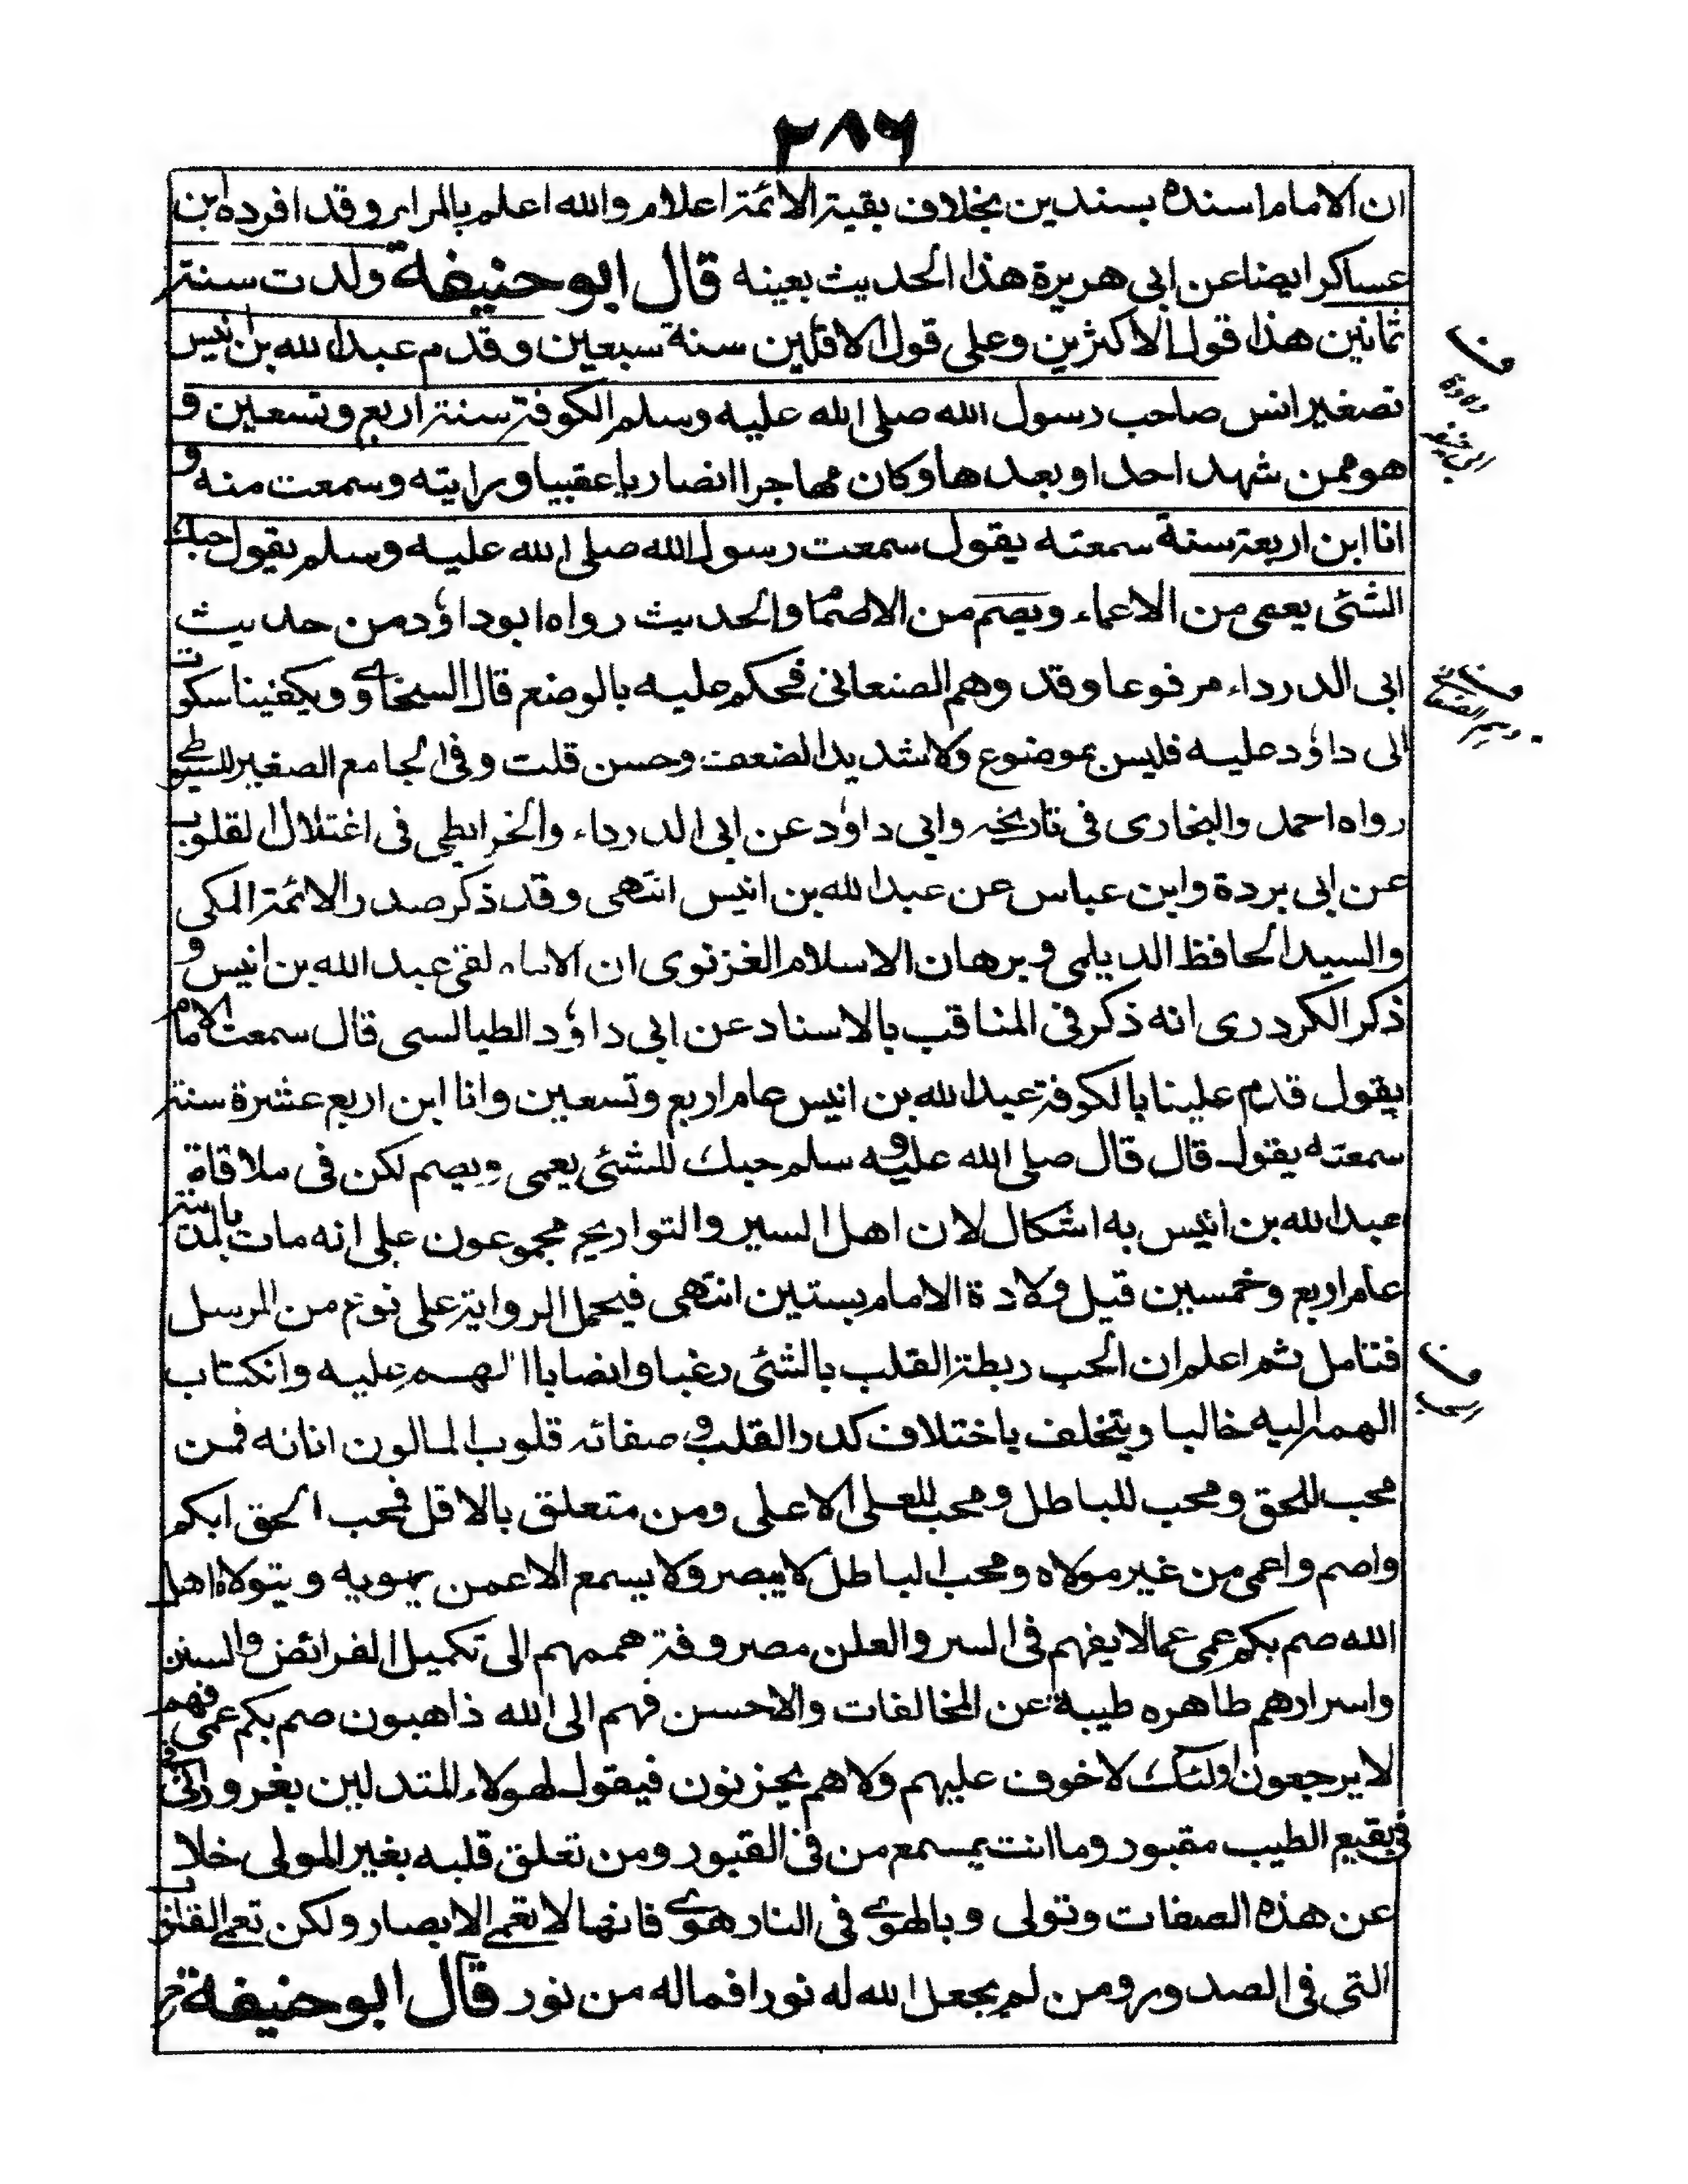 ٢٨٦
ان الامام اسنده بسندين بخلاف بقية الائمة اعلام والله اعلم بالمرام وقد افرده بن
عساكر ايضا عن ابى هريرة هذا الحديث بعينه قال ابو حنيفة ولدت سنة
ثمانين هذا قول الاكثرين وعلى قول الاقلين سنة سبعين وقدم عبد الله بن انيس
تصغير انس صاحب رسول الله صلى الله عليه وسلم الكوفة سنة اربع وتسعين و
هو ممن شهد احدا وبعدها وكان مهاجرا انصاريا عقبيا ورايته وسمعت منه و
انا ابن اربعة سنة سمعته يقول سمعت رسول الله صلى الله عليه وسلم يقول حبك
الشئى يعمى من الاعماء ويصم من الاصما والحديث رواه ابو داؤد من حديث
ابى الدرداء مرفوعا وقد وهم الصنعانى فحكم عليه بالوضع قال السخاوى ويكفينا سكوت
الى داؤد عليه فليس بموضوع ولا شديد الضعف وحسن قلت وفى الجامع الصغير للسيوطى
رواه احمد والبخارى فى تاريخه وابى داؤد عن ابى الدرداء والخرائطى فى اغتلال القلوب
عن ابى بردة وابن عباس عن عبد الله بن انيس انتهى وقد ذكر صدر الائمة المكى
والسيد الحافظ الديلمى و برهان الاسلام الغزنوى ان الامام لقى عبد الله بن انيس و
ذكر الكردرى انه ذكر فى المناقب بالاسناد عن ابى داؤد الطيالسى قال سمعت الامام
يقول قدم علينا بالكوفة عبد الله بن انيس عام اربع وتسعين وانا ابن اربع عشرة سنة
سمعته يقول قال قال صلى الله عليه و سلم حبك للشئى يعمى ويصم لكن فى ملاقاة
عبد الله بن انيس به اشكال لان اهل السير والتواريخ مجموعون على انه مات بالمدينة
عام اربع وخمسين قبل ولادة الامام بستين انتهى فيحمل الرواية على نوع من المرسل
فتامل ثم اعلم ان الحب ربطة القلب بالشئى رغبا وانضابا الهم عليه وانكتاب
الهم اليه خالبا ويتخلف باختلاف كدر القلب و صفائه قلوب المالون انانه فمن
محب للحق ومحب للباطل ومحب للعلى الاعلى ومن متعلق بالاقل فحب الحق ابكم
واصم واعمى من غير مولاه ومحب الباطل لا يبصر ولا يسمع الا عمن يهويه ويتولاه اهل
الله صم بكم عمى عما لا يفهم فى السر والعلن مصروفة هممهم الى تكميل الفرائض والسنن
واسرارهم طاهره طيبة عن المخالفات والاحسن فهم الى الله ذاهبون صم بكم عمى فهم
لا يرجعون اولئك لا خوف عليهم ولا هم يحزنون فيقول لهولاء المتدلين بغرور
فى بقيع الطيب مقبور وما انت بمسمع من فى القبور ومن تعلق قلبه بغير المولى خلا
عن هذه الصفات وتولى وبالهوى فى النار هوى فانها لا تعمى الابصار ولكن تعمى القلوب
التى فى الصدور ومن لم يجعل الله له نورا فماله من نور قال ابو حنيفة